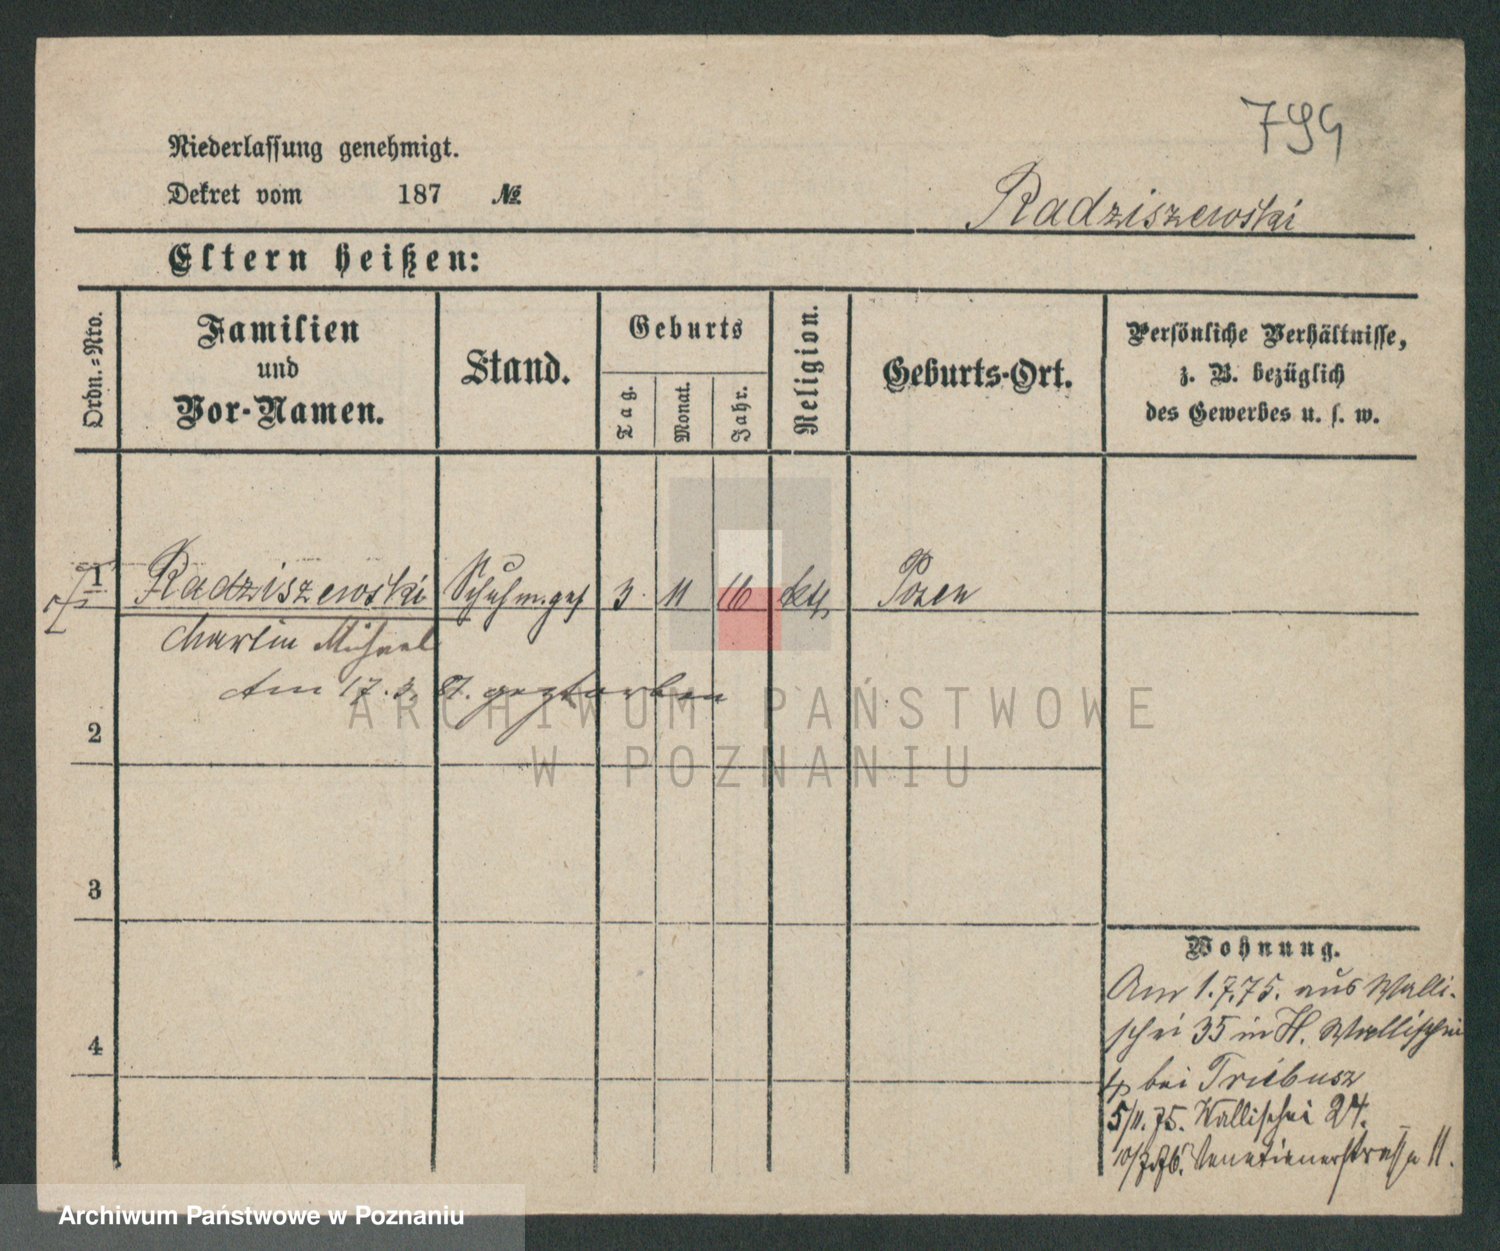 799
Niederlassung genehmigt.
Dekret vom 187 №
Radziszewski
Eltern heißen:
Ordn.-Nro.
Familien
und
Vor-Namen.
Stand.
Geburts
Tag.
Monat.
Jahr.
Religion.
Geburts-Ort.
Persönliche Verhältnisse,
z. B. bezüglich
des Gewerbes u. s. w.
1 Radziszewski Schuhm.ges 3 11 16 kth Posen
Michael
Am 17. 3. gestorben
2
3
4
Wohnung.
Am 1.7.75. aus Walli-
schei 35 in H. Wallischei
4 bei Triebusz
5/11. 75. Wallischei 24.
10/7.76. Venetianerstrasse 11.
ARCHIWUM PAŃSTWOWE
W POZNANIU
Archiwum Państwowe w Poznaniu